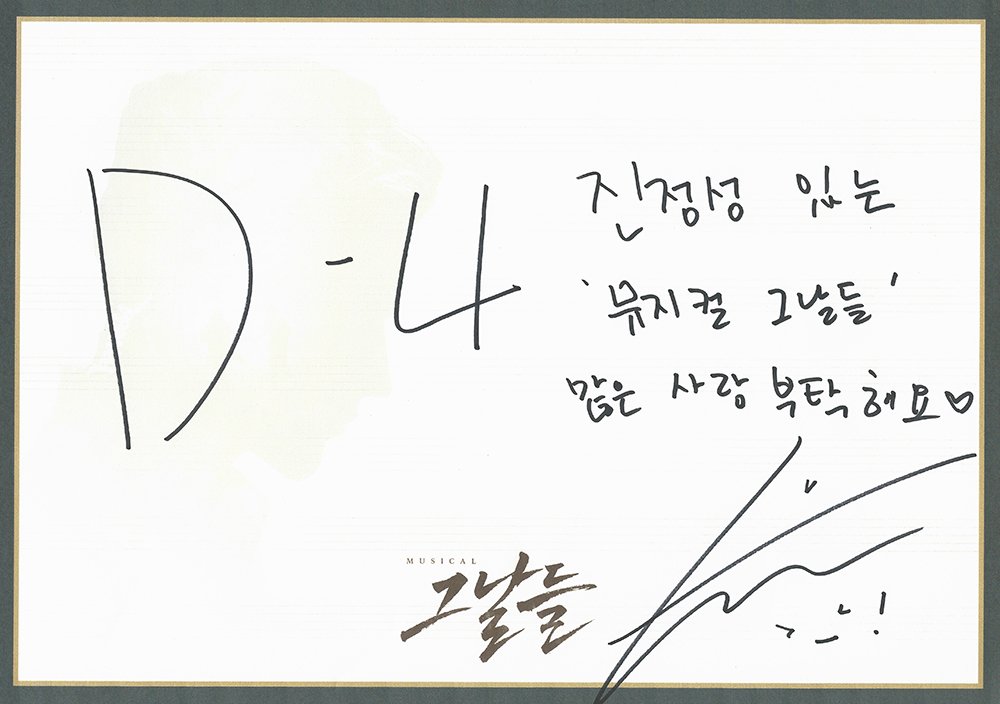 D-4
진정성 있는
'뮤지컬 그날들'
많은 사랑 부탁해요♡
MUSICAL
그날들